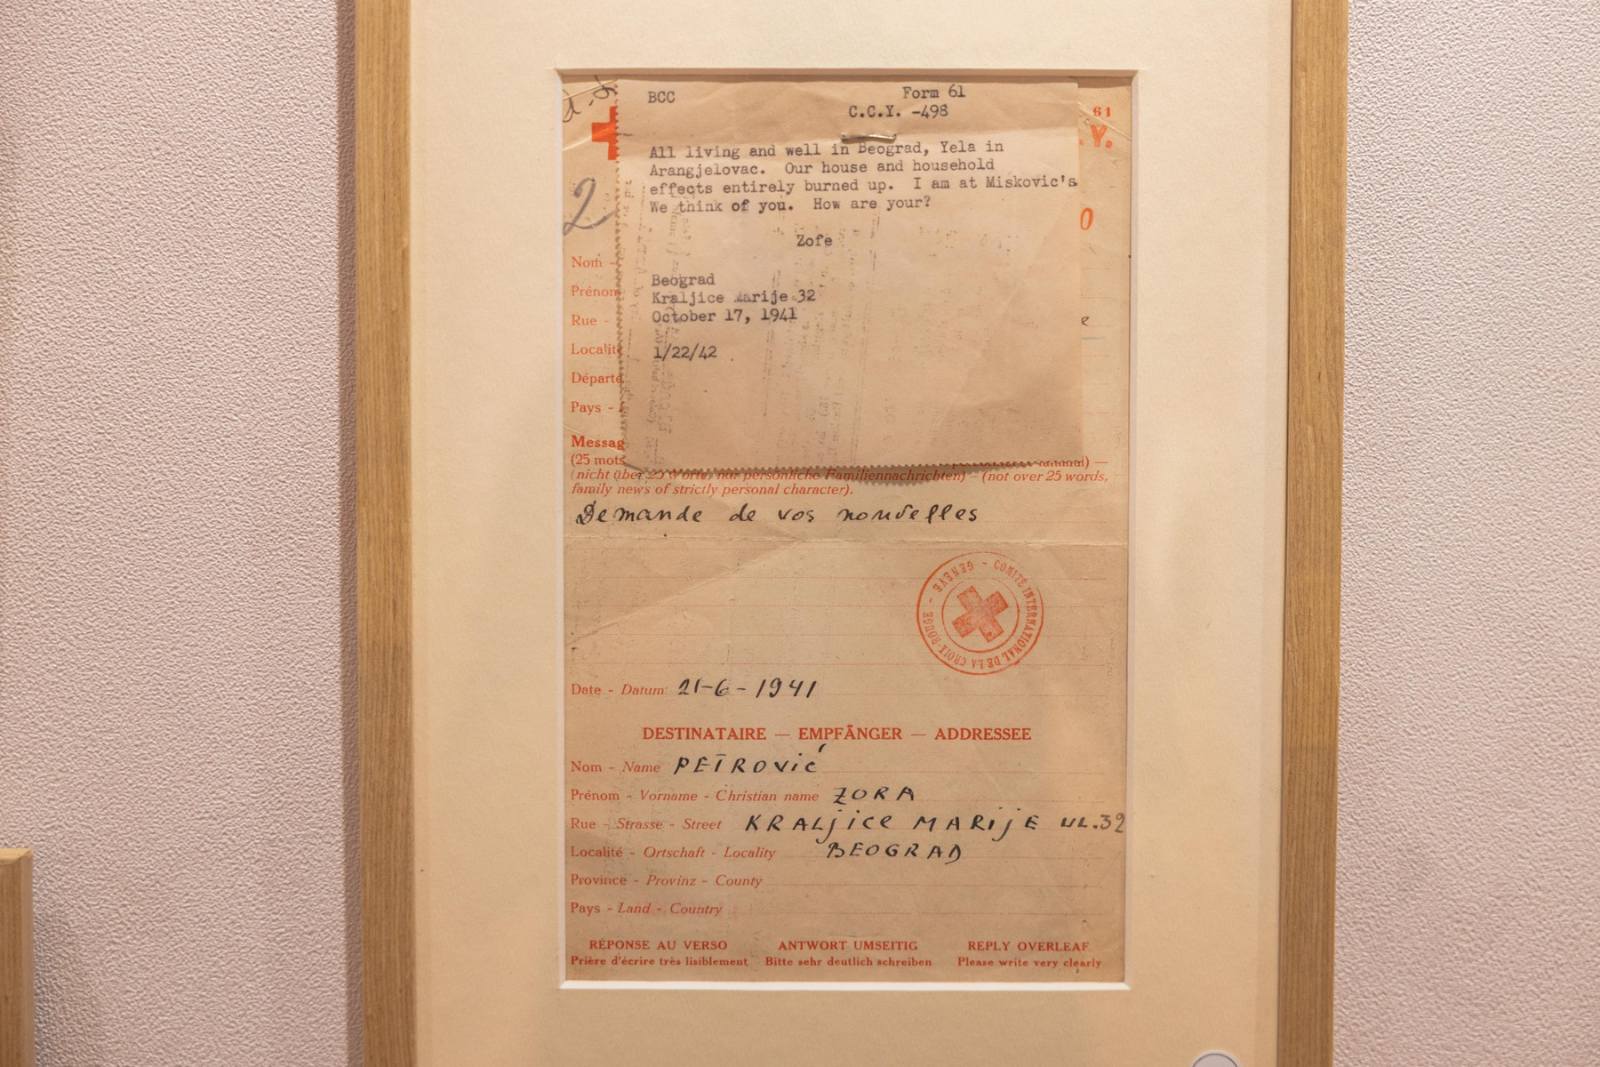 BCC
Form 61
C.C.Y. -498
61
.Y.
All living and well in Beograd, Yela in
Arangjelovac. Our house and household
effects entirely burned up. I am at Miskovic's
We think of you. How are your?
2
0
Zofe
Nom -
Beograd
Prénom
Kraljice Marije 32
Rue -
October 17, 1941
e
Localité
1/22/42
Départe
Pays -
Messag
(25 mots
(nicht über 25 Worte, nur persönliche Familiennachrichten) - (not over 25 words,
family news of strictly personal character).
Demande de vos nouvelles
COMITÉ INTERNATIONAL DE LA CROIX-ROUGE - GENÈVE -
Date - Datum 21-6-1941
DESTINATAIRE — EMPFÄNGER — ADDRESSEE
Nom - Name PETROVIĆ
Prénom - Vorname - Christian name ZORA
Rue - Strasse - Street KRALJICE MARIJE UL.32
Localité - Ortschaft - Locality BEOGRAD
Province - Provinz - County
Pays - Land - Country
RÉPONSE AU VERSO ANTWORT UMSEITIG REPLY OVERLEAF
Prière d'écrire très lisiblement Bitte sehr deutlich schreiben Please write very clearly